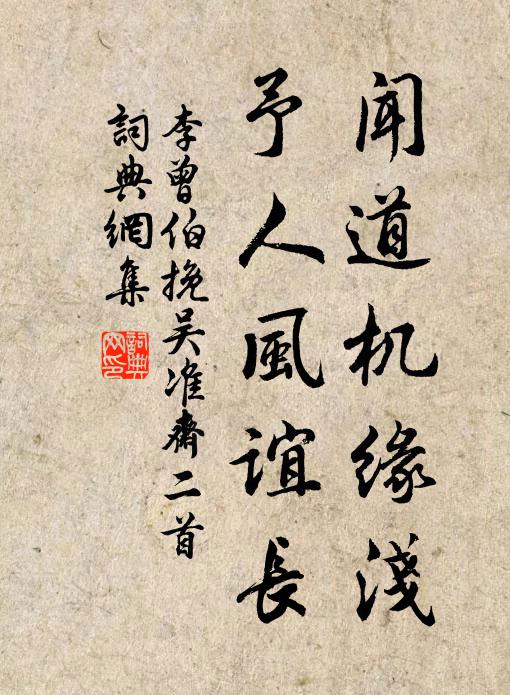 闻道机缘淺
予人風誼長
李曾伯挽吴准齋二首
詞典網集
詞典網印